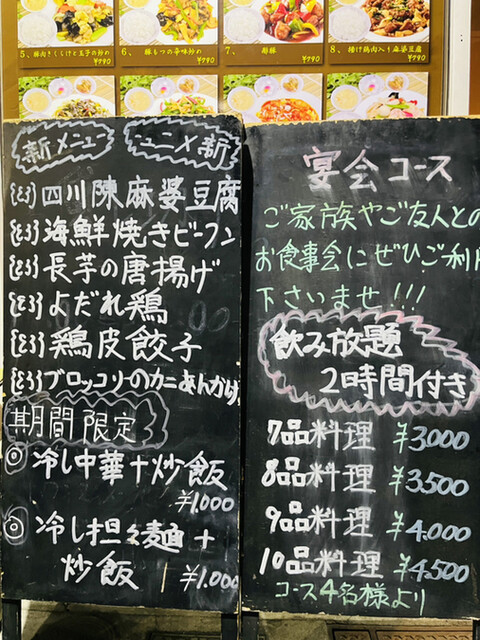 5、豚肉きくらげと玉子の炒め
¥790
6、豚もつの辛味炒め
¥790
7、酢豚
¥790
8、揚げ鶏肉入り麻婆豆腐
¥790
新メニュー
ニュニメ新
四川陳麻婆豆腐
海鮮焼きビーフン
長芋の唐揚げ
よだれ鶏
鶏皮餃子
ブロッコリのカニあんかけ
期間限定
◎冷し中華+炒飯
¥1,000
◎冷し担々麺+
炒飯 ¥1,000
宴会コース
ご家族やご友人との
お食事会にぜひご利用
下さいませ!!!
飲み放題
2時間付き
7品料理 ¥3000
8品料理 ¥3,500
9品料理 ¥4,000
10品料理 ¥4,500
コース4名様より